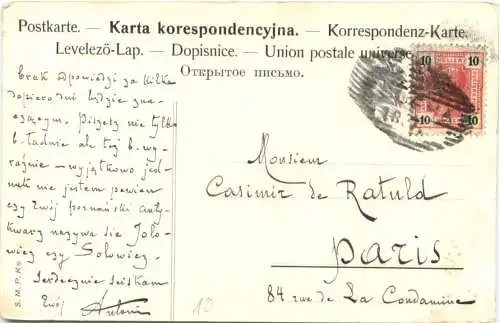 Postkarte. — Karta korespondencyjna. — Korrespondenz-Karte.
Levelező-Lap. — Dopisnice. — Union postale universe
Открытое письмо.
10 HELLER 10
10 10
brak odpowiedzi za kilka
dopiero dni będzie zna-
czącym. Piszesz nie tylko
b. ładnie ale też b. wy-
raźnie — wyjątkowo jed-
nak nie jestem pewien
czy Twój poznański anty-
kwarz nazywa się Joło-
wicz czy Sołowicz.
Serdecznie ściskam
Twój Antoni
Monsieur
Casimir de Ratuld
Paris
84 rue de La Condamine
S.M.P.Kr.
10